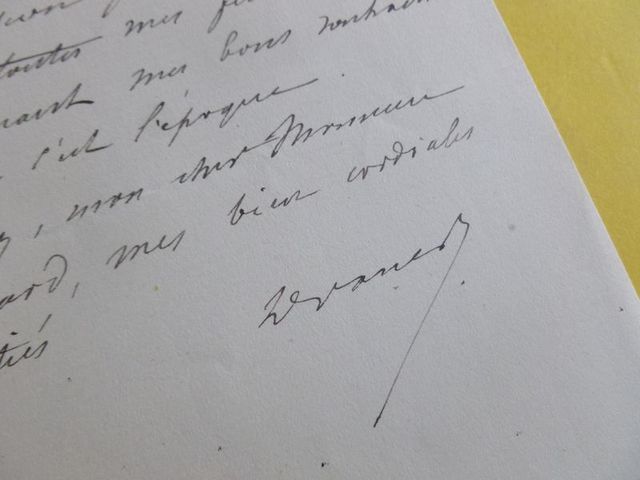 toutes mes
mes bons souhaits
c'est l'époque.
, mon cher Monsieur
ard, mes bien cordiales
tiés